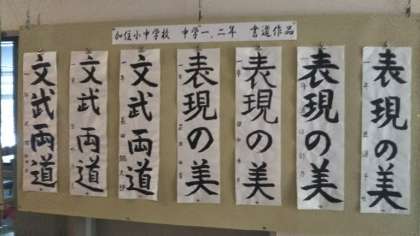 加住小中学校 中学一、二年 書道作品
表現の美
表現の美
表現の美
表現の美
文武両道
文武両道
文武両道